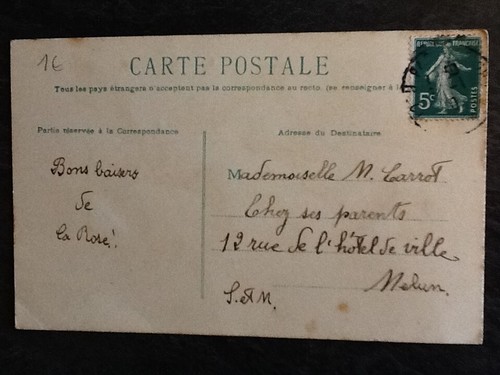 1€
CARTE POSTALE
REPUBLIQUE FRANÇAISE
5c
POSTES
Tous les pays étrangers n'acceptent pas la correspondance au recto. (se renseigner à
Partie réservée à la Correspondance
Adresse du Destinataire
Bons baisers
de
La Rose!
Mademoiselle M. Carrot
Chez ses parents
12 rue de l'hôtel de ville
Melun.
S. et M.